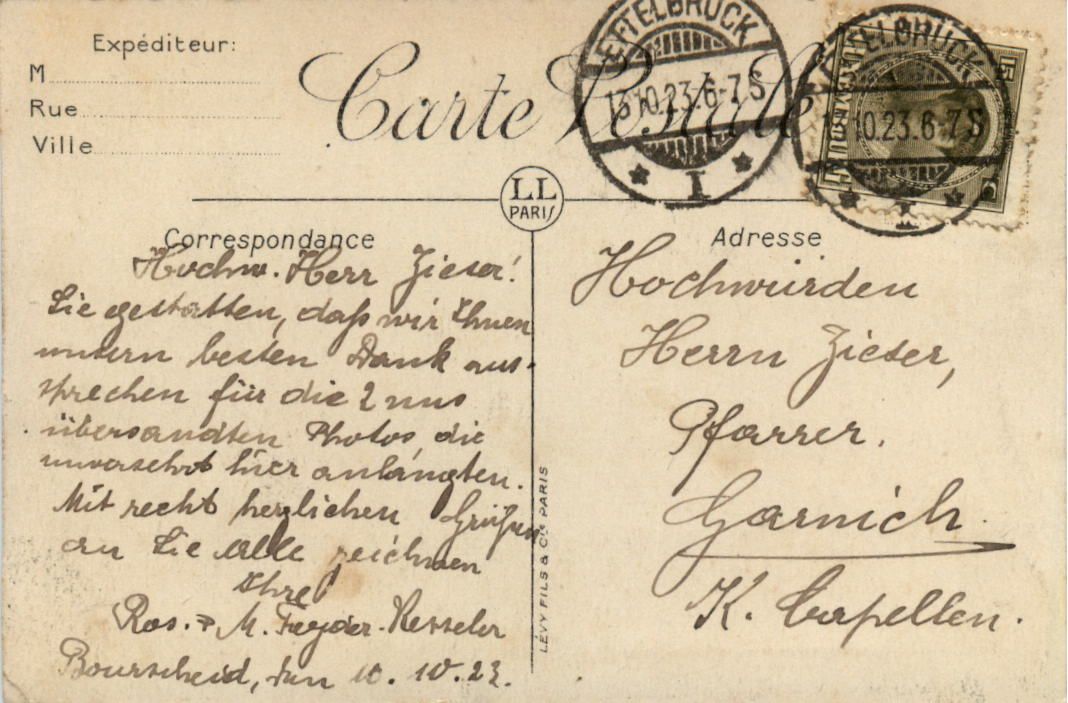 Expéditeur:
M
Rue
Ville
Carte Postale
ETTELBRÜCK
13.10.23.6-7S
I
ETTELBRÜCK
.10.23.6-7S
LUXEMBOURG
LL
PARIS
Correspondance
Hochw. Herr Zieser!
Sie gestatten, daß wir Ihnen
unsern besten Dank aus-
sprechen für die 2 uns
übersandten Photos die
unversehrt hier anlangten.
Mit recht herzlichen Grüßen
an Sie alle zeichnen
Ihre
Ros. & M. Feyder-Kesseler
Bourscheid, den 10. 10. 23.
LÉVY FILS & Cie PARIS
Adresse
Hochwürden
Herrn Zieser,
Pfarrer.
Garnich.
K. Capellen.